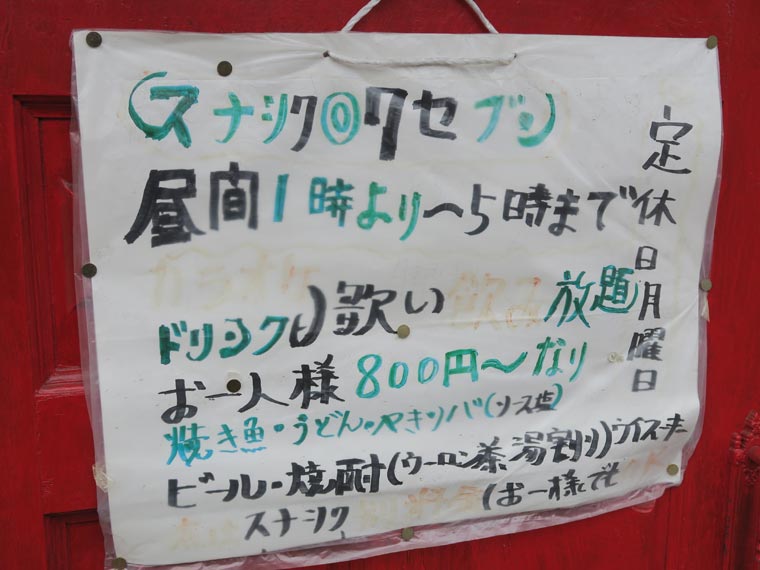 (スナシク◎クセブン
昼間1時より〜5時まで
定休日月曜日
カラオケ 飲み放題
ドリンク 歌い
お一人様800円〜なり
焼き魚・うどん・やきソバ(ソース塩)
ビール・焼酎(ウーロン茶湯割り)ウイスキー
スナシク (お一様でも